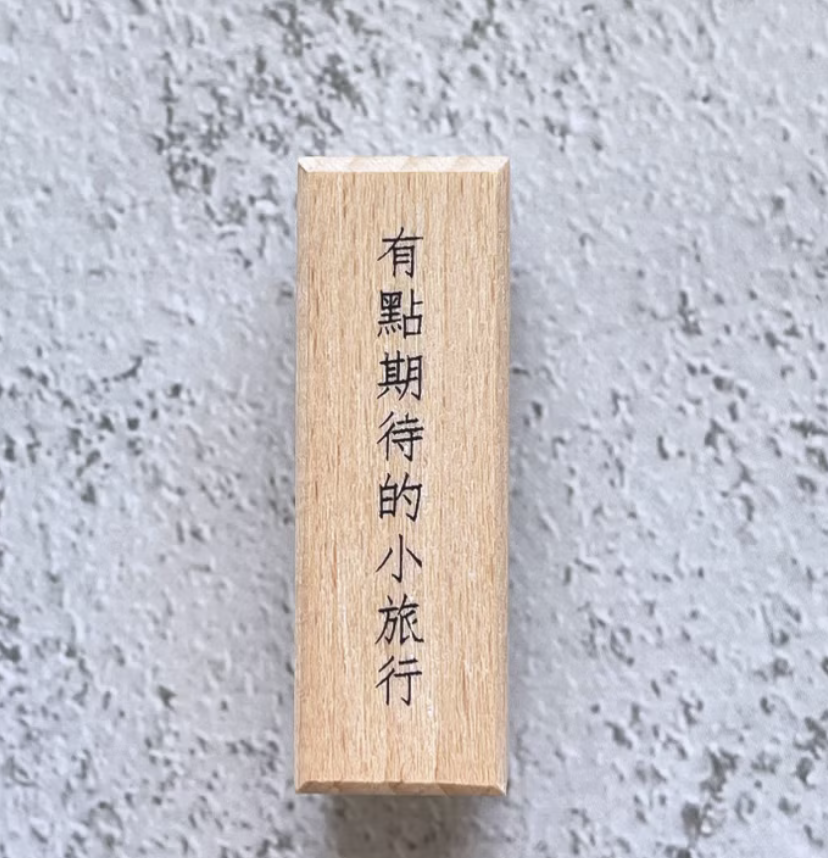 有點期待的小旅行